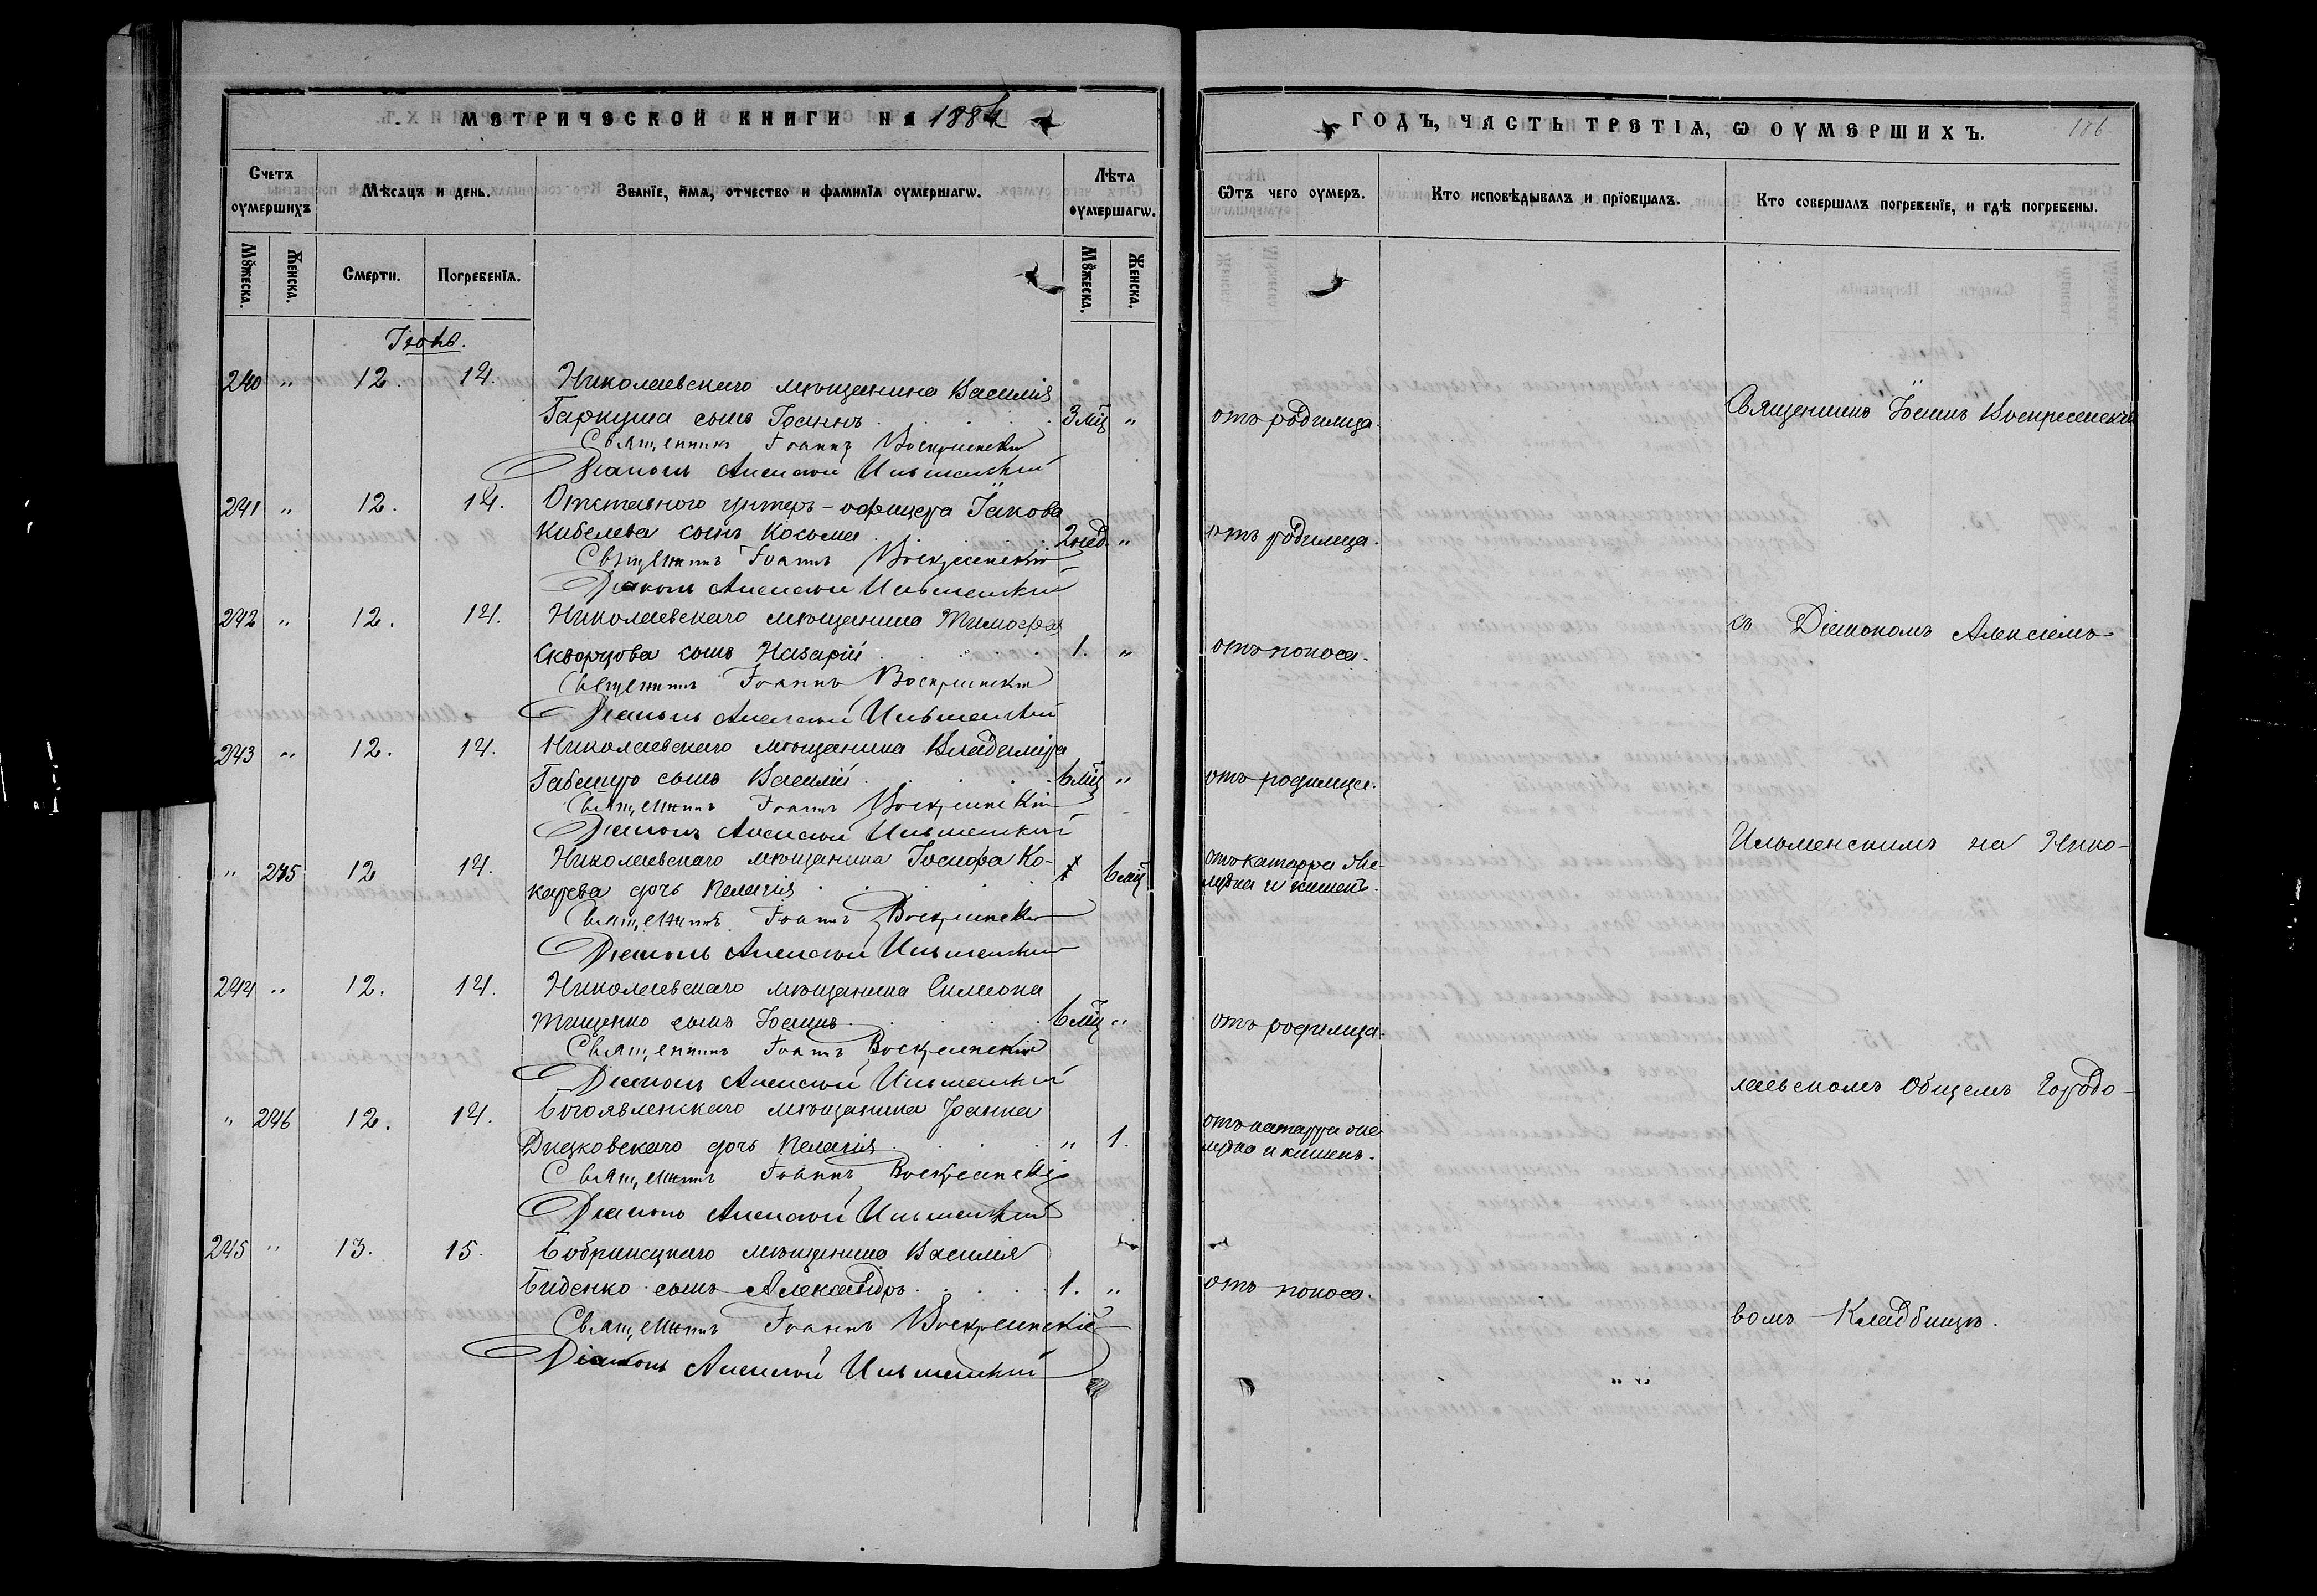 МЕТРИЧЕСКОЙ КНИГИ НА 1884
Счетъ оумершихъ
Мѣсяцъ и день.
Званіе, имя, отчество и фамилія оумершагѡ.
Лѣта оумершагѡ.
Мꙋжеска. Женска. Смерти. Погребенія. Мꙋжеска. Женска.
Іюнь.
240 " 12. 14. Николаевскаго мѣщанина Василія
Гаркуша сынъ Іоаннъ 3 мц "
Священникъ Іоаннъ Воскресенскій
Діаконъ Алексій Ильменскій
241 " 12. 14. Отставного унтеръ-офицера Іакова
Кибелева сынъ Косьма 2 нед. "
Священникъ Іоаннъ Воскресенскій
Діаконъ Алексій Ильменскій
242 " 12. 14. Николаевскаго мѣщанина Тимофея
Скворцова сынъ Назарій 1. "
Священникъ Іоаннъ Воскресенскій
Діаконъ Алексій Ильменскій
243 " 12. 14. Николаевскаго мѣщанина Владиміра
сынъ Василій 6 мц "
Священникъ Іоаннъ Воскресенскій
Діаконъ Алексій Ильменскій
" 245 12 14. Николаевскаго мѣщанина Іосифа Ко-
карева дочь Пелагія 6 мц
Священникъ Іоаннъ Воскресенскій
Діаконъ Алексій Ильменскій
244 " 12. 14. Николаевскаго мѣщанина Симеона
Тищенко сынъ Іоаннъ 6 мц "
Священникъ Іоаннъ Воскресенскій
Діаконъ Алексій Ильменскій
" 246 12. 14. Богоявленскаго мѣщанина Іоанна
Дицковскаго дочь Пелагія " 1.
Священникъ Іоаннъ Воскресенскій
Діаконъ Алексій Ильменскій
245 " 13. 15. Бобринецкаго мѣщанина Василія
Биденко сынъ Александръ 1. "
Священникъ Іоаннъ Воскресенскій
Діаконъ Алексій Ильменскій
ГОДЪ, ЧАСТЬ ТРЕТІѦ, Ѡ ОУМЕРШИХЪ. 186
Ѿтъ чего оумеръ.
Кто исповѣдывалъ и пріобщалъ.
Кто совершалъ погребеніе, и гдѣ погребены.
отъ родимца.
Священникъ Іоаннъ Воскресенскій
отъ родимца.
съ Діакономъ Алексіемъ
отъ поноса.
отъ родимца.
Ильменскимъ на Нико-
отъ катарра же-
лудка и кишекъ.
отъ родимца.
лаевскомъ Общемъ Городо-
отъ катарра же-
лудка и кишекъ.
отъ поноса.
вомъ Кладбищѣ.